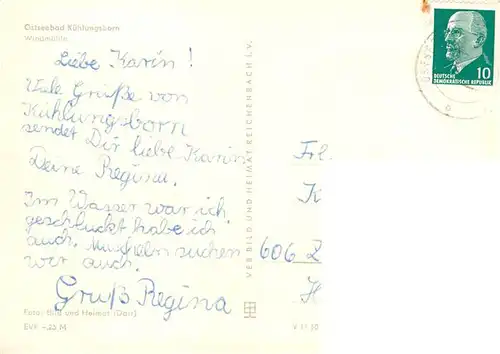 Ostseebad Kühlungsborn
Windmühle
Liebe Karin!
Viele Grüße von
Kühlungsborn
sendet Dir liebe Karin
Deine Regina.
Im Wasser war ich,
geschluckt habe ich
auch. Muscheln suchen
wir auch.
Gruß Regina
Foto: Bild und Heimat (Darr)
EVP -,25 M
VEB BILD UND HEIMAT REICHENBACH I. V.
10
DEUTSCHE
DEMOKRATISCHE REPUBLIK
Frl.
K
606 Z
H